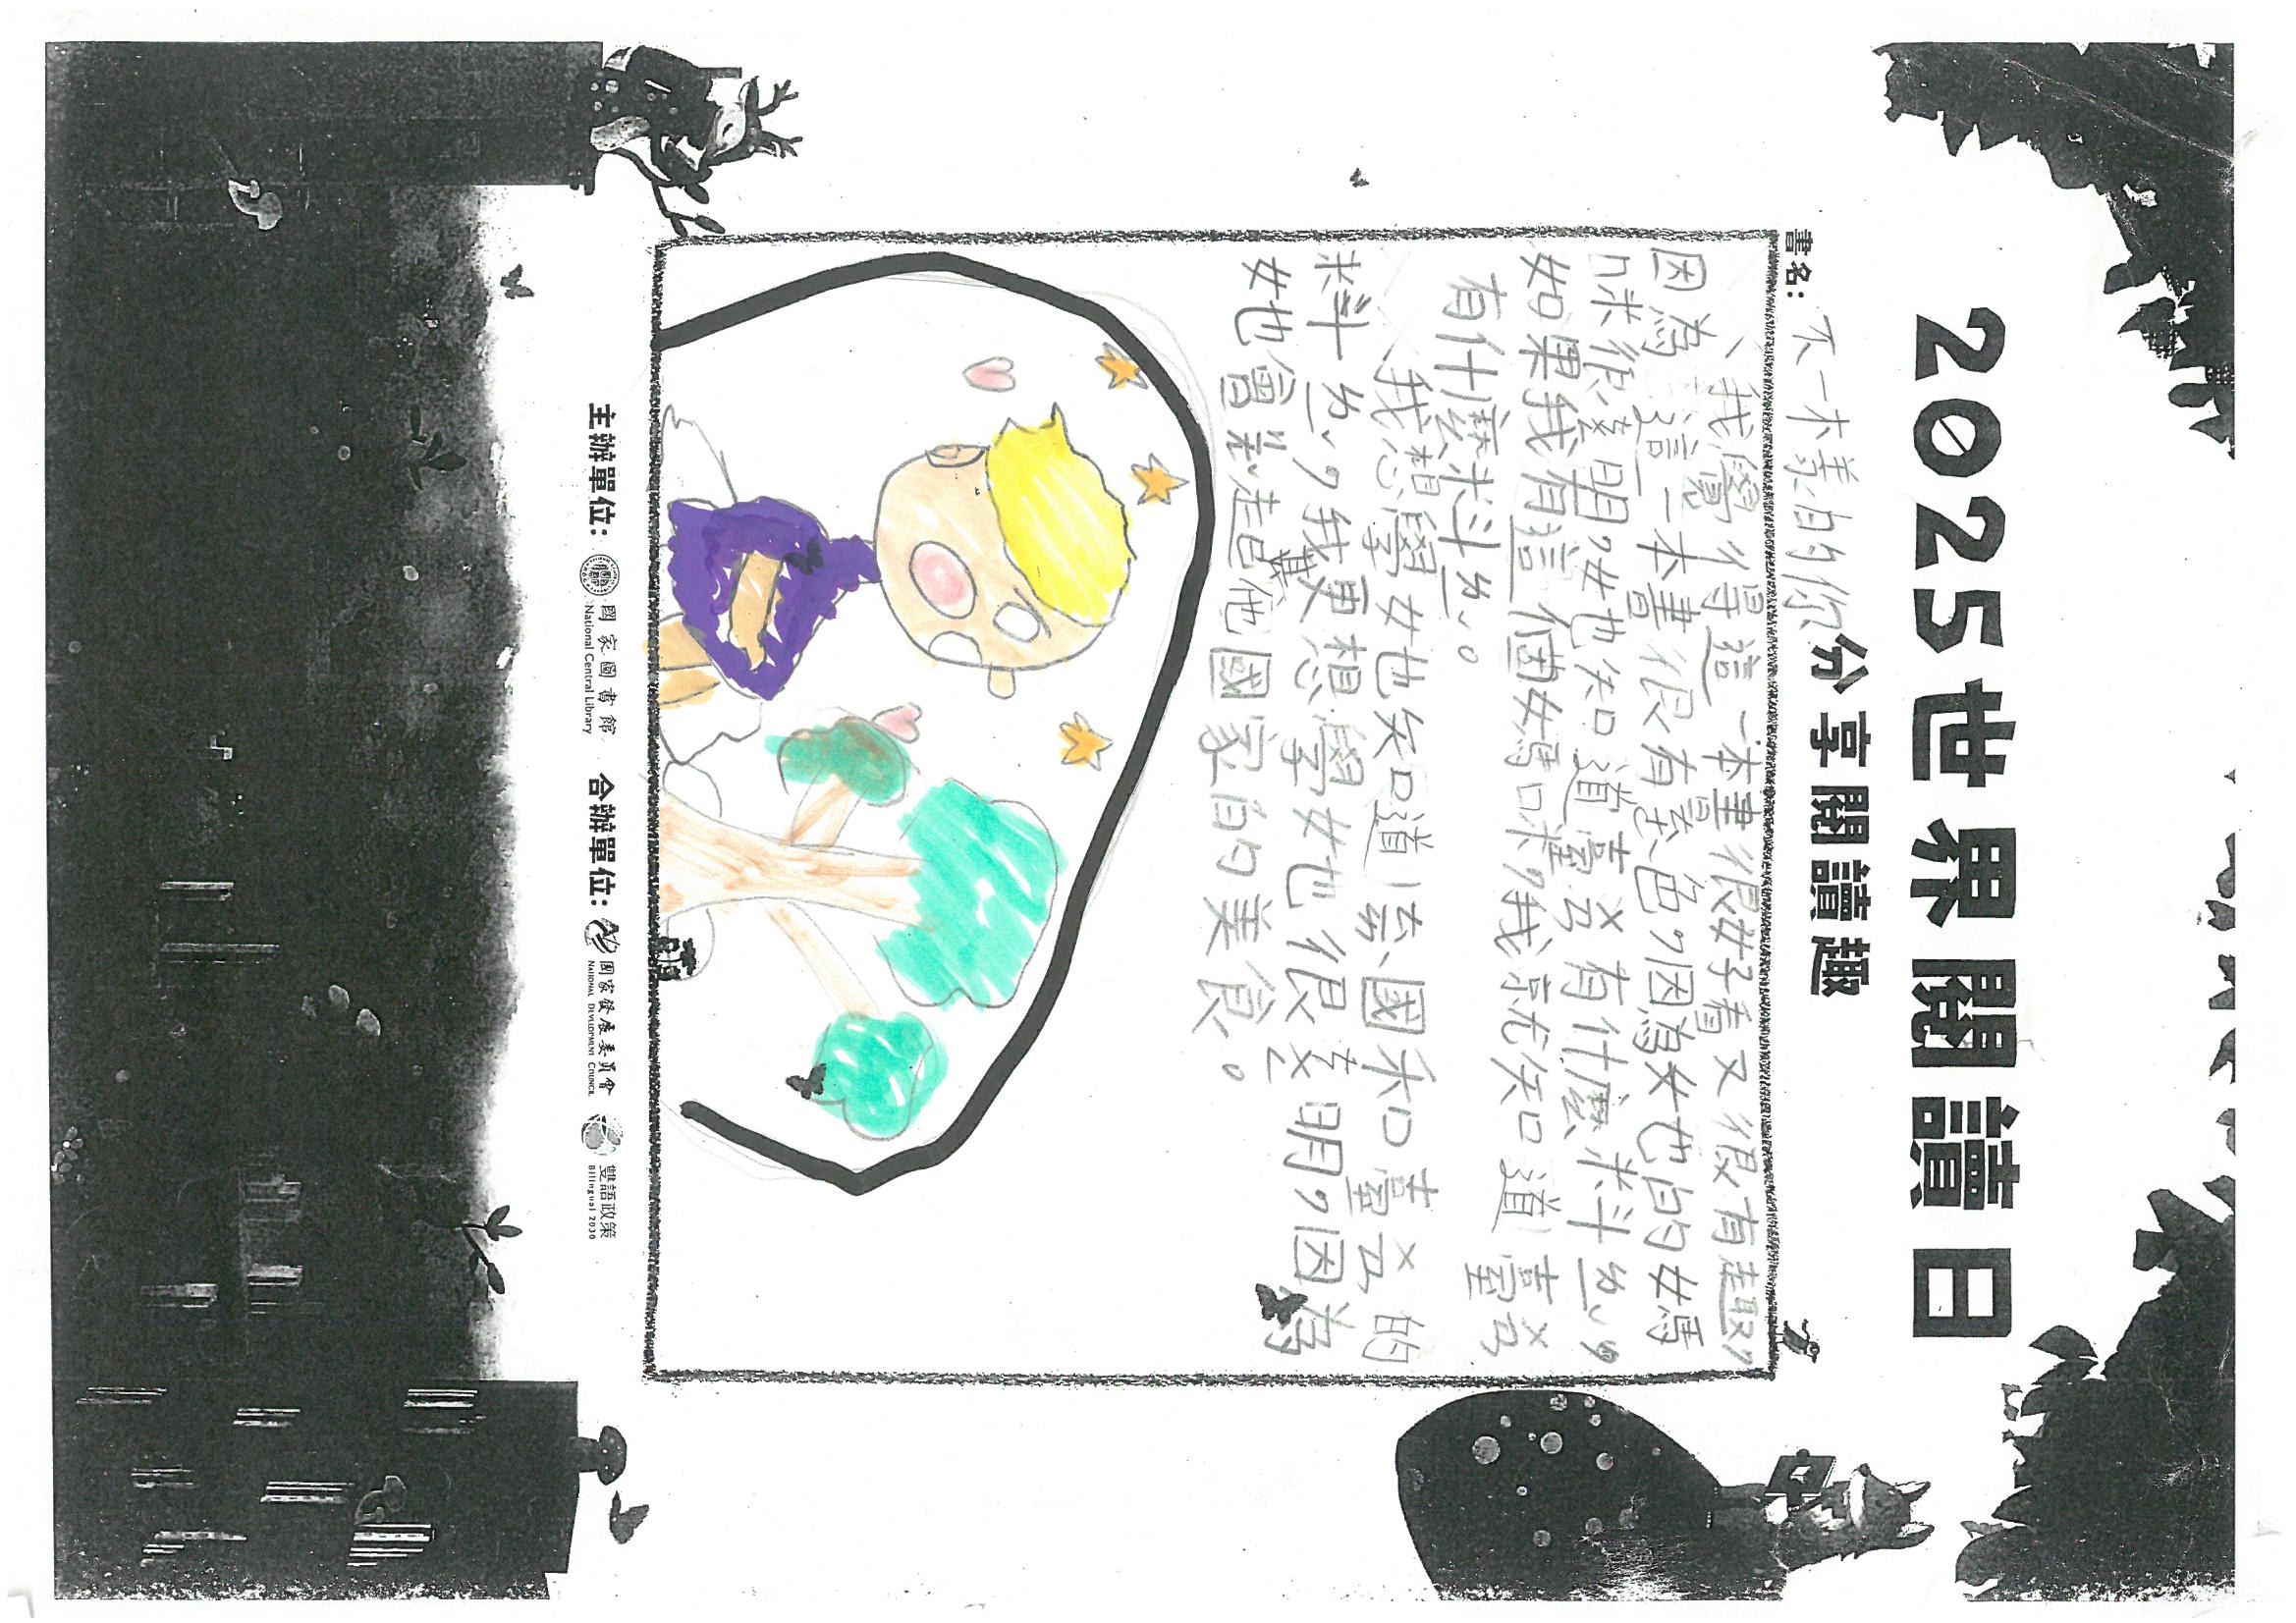 2025世界閱讀日
分享閱讀趣
書名：不一樣的你
我覺得這一本書很好看又很有趣，
因為這一本書很有色，因為她的媽
咪很明，她知道臺ㄨㄢ有什麼料，
如果我有這個媽咪，我就知道臺ㄨㄢ
有什麼料。
我想學她知道國和臺ㄨㄢ的
料，我更想學她很明，因為
她會起他國家的美食。
主辦單位： 國家圖書館 National Central Library 合辦單位： 國家發展委員會 National Development Council 雙語政策 Bilingual 2030